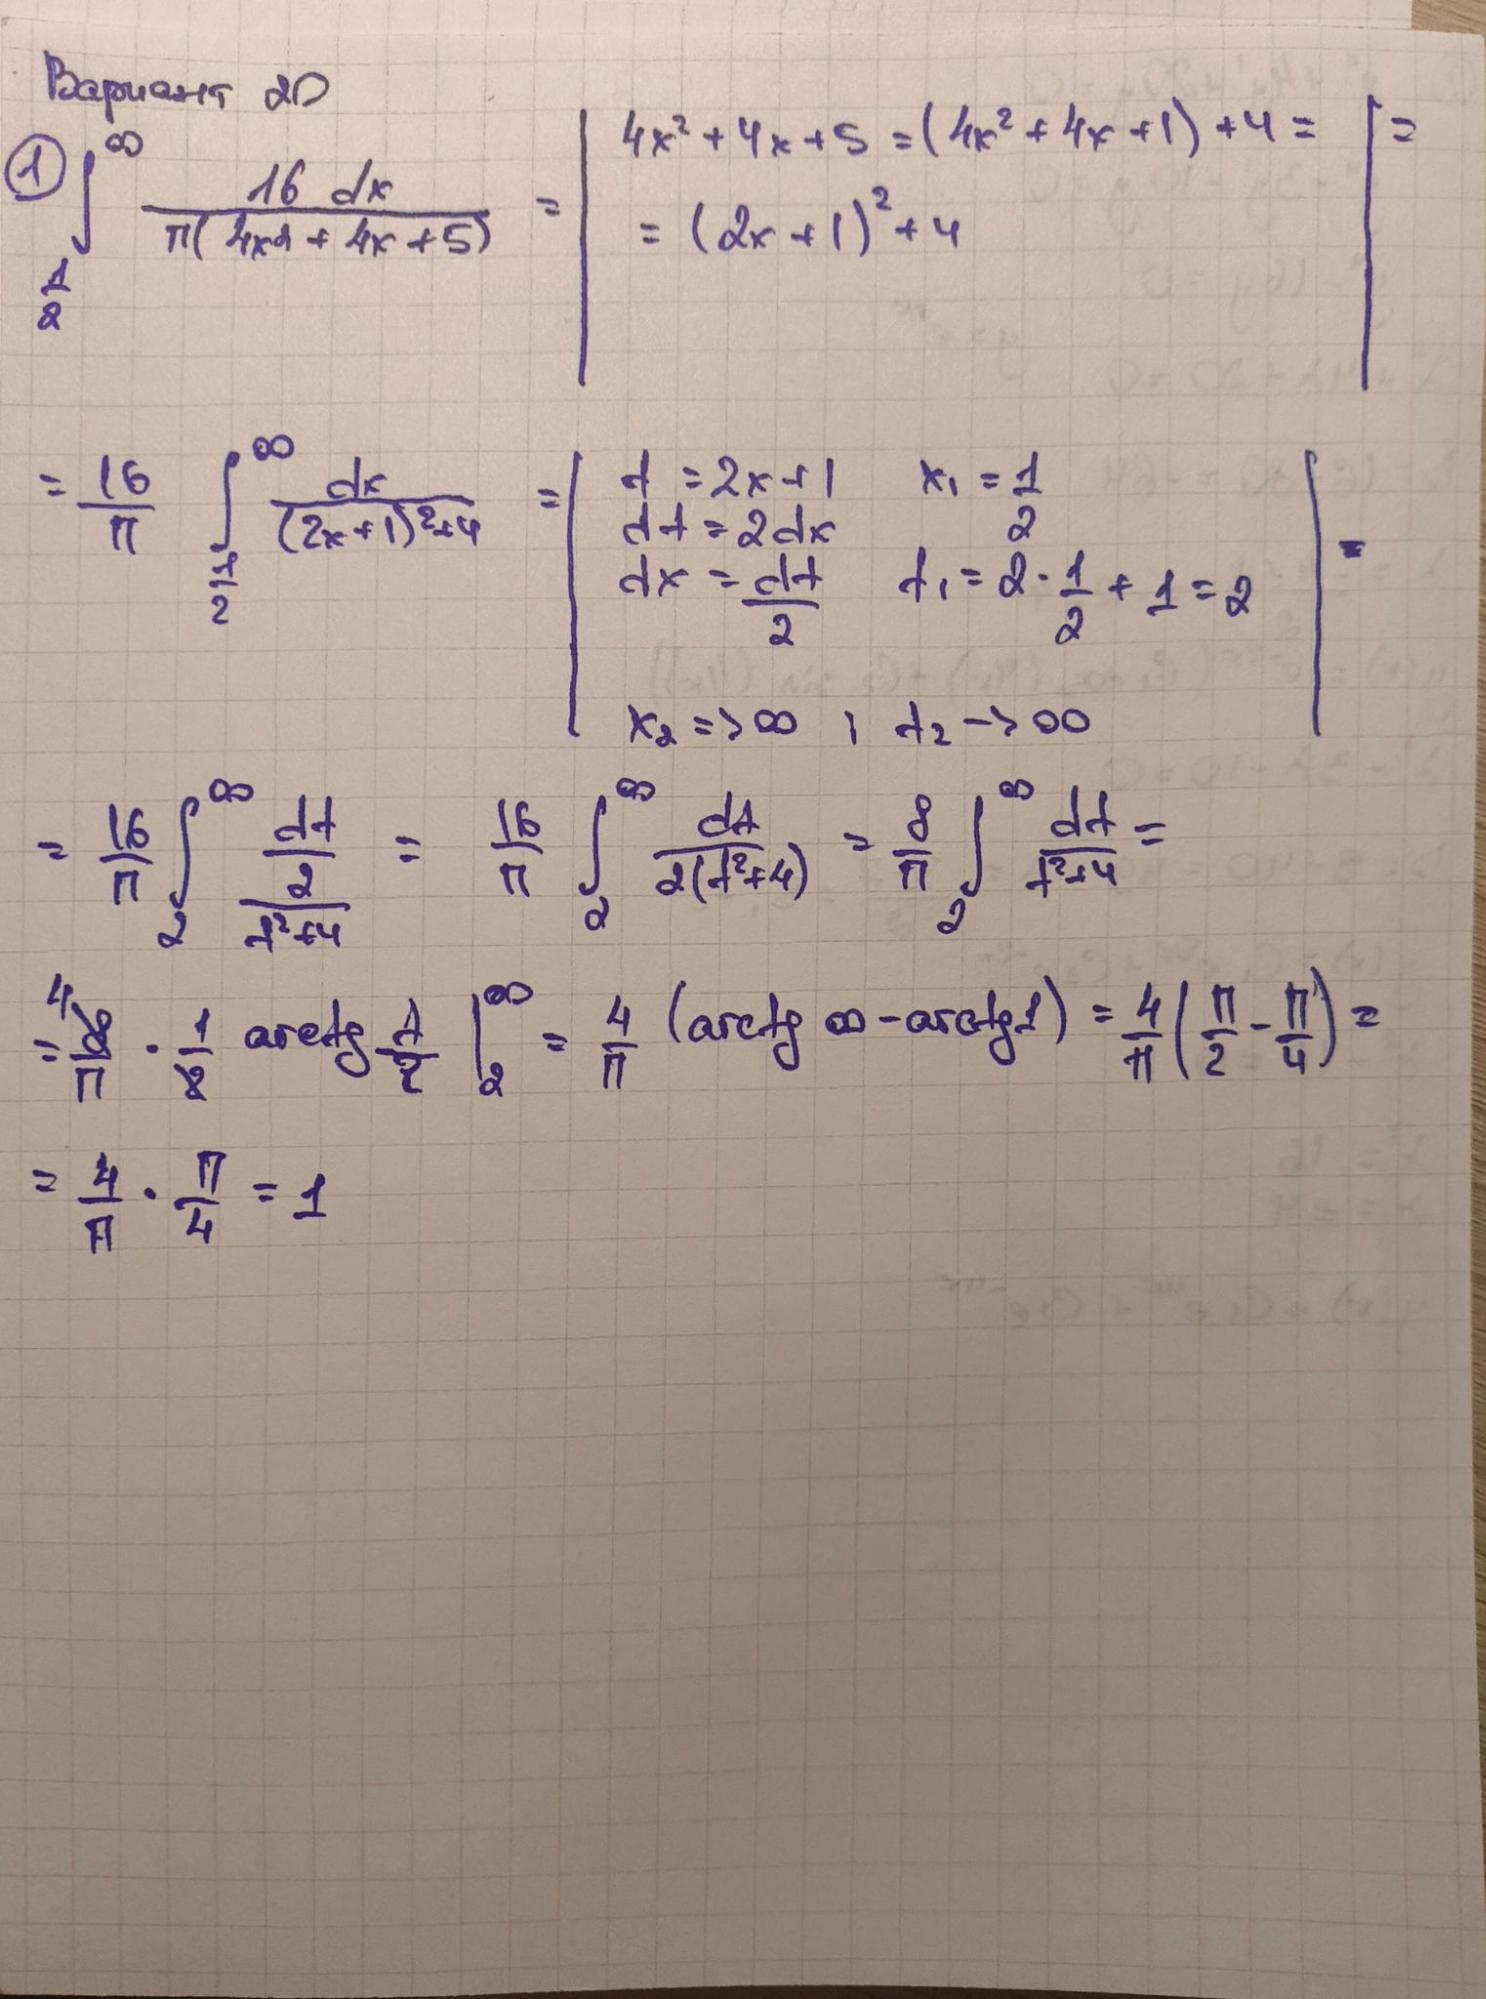 Вариант 20
① ∫_{1/2}^{∞} 16 dx / π(4x² + 4x + 5) = | 4x² + 4x + 5 = (4x² + 4x + 1) + 4 = | =
= (2x + 1)² + 4
= 16/π ∫_{1/2}^{∞} dx / (2x+1)²+4 = | t = 2x+1 x₁ = 1/2 | =
dt = 2dx
dx = dt/2 t₁ = 2 · 1/2 + 1 = 2
x₂ => ∞ ; t₂ -> ∞
= 16/π ∫_{2}^{∞} (dt/2) / (t²+4) = 16/π ∫_{2}^{∞} dt / 2(t²+4) = 8/π ∫_{2}^{∞} dt / t²+4 =
= 8/π · 1/2 arctg t/2 |_{2}^{∞} = 4/π (arctg ∞ - arctg 1) = 4/π (π/2 - π/4) =
= 4/π · π/4 = 1